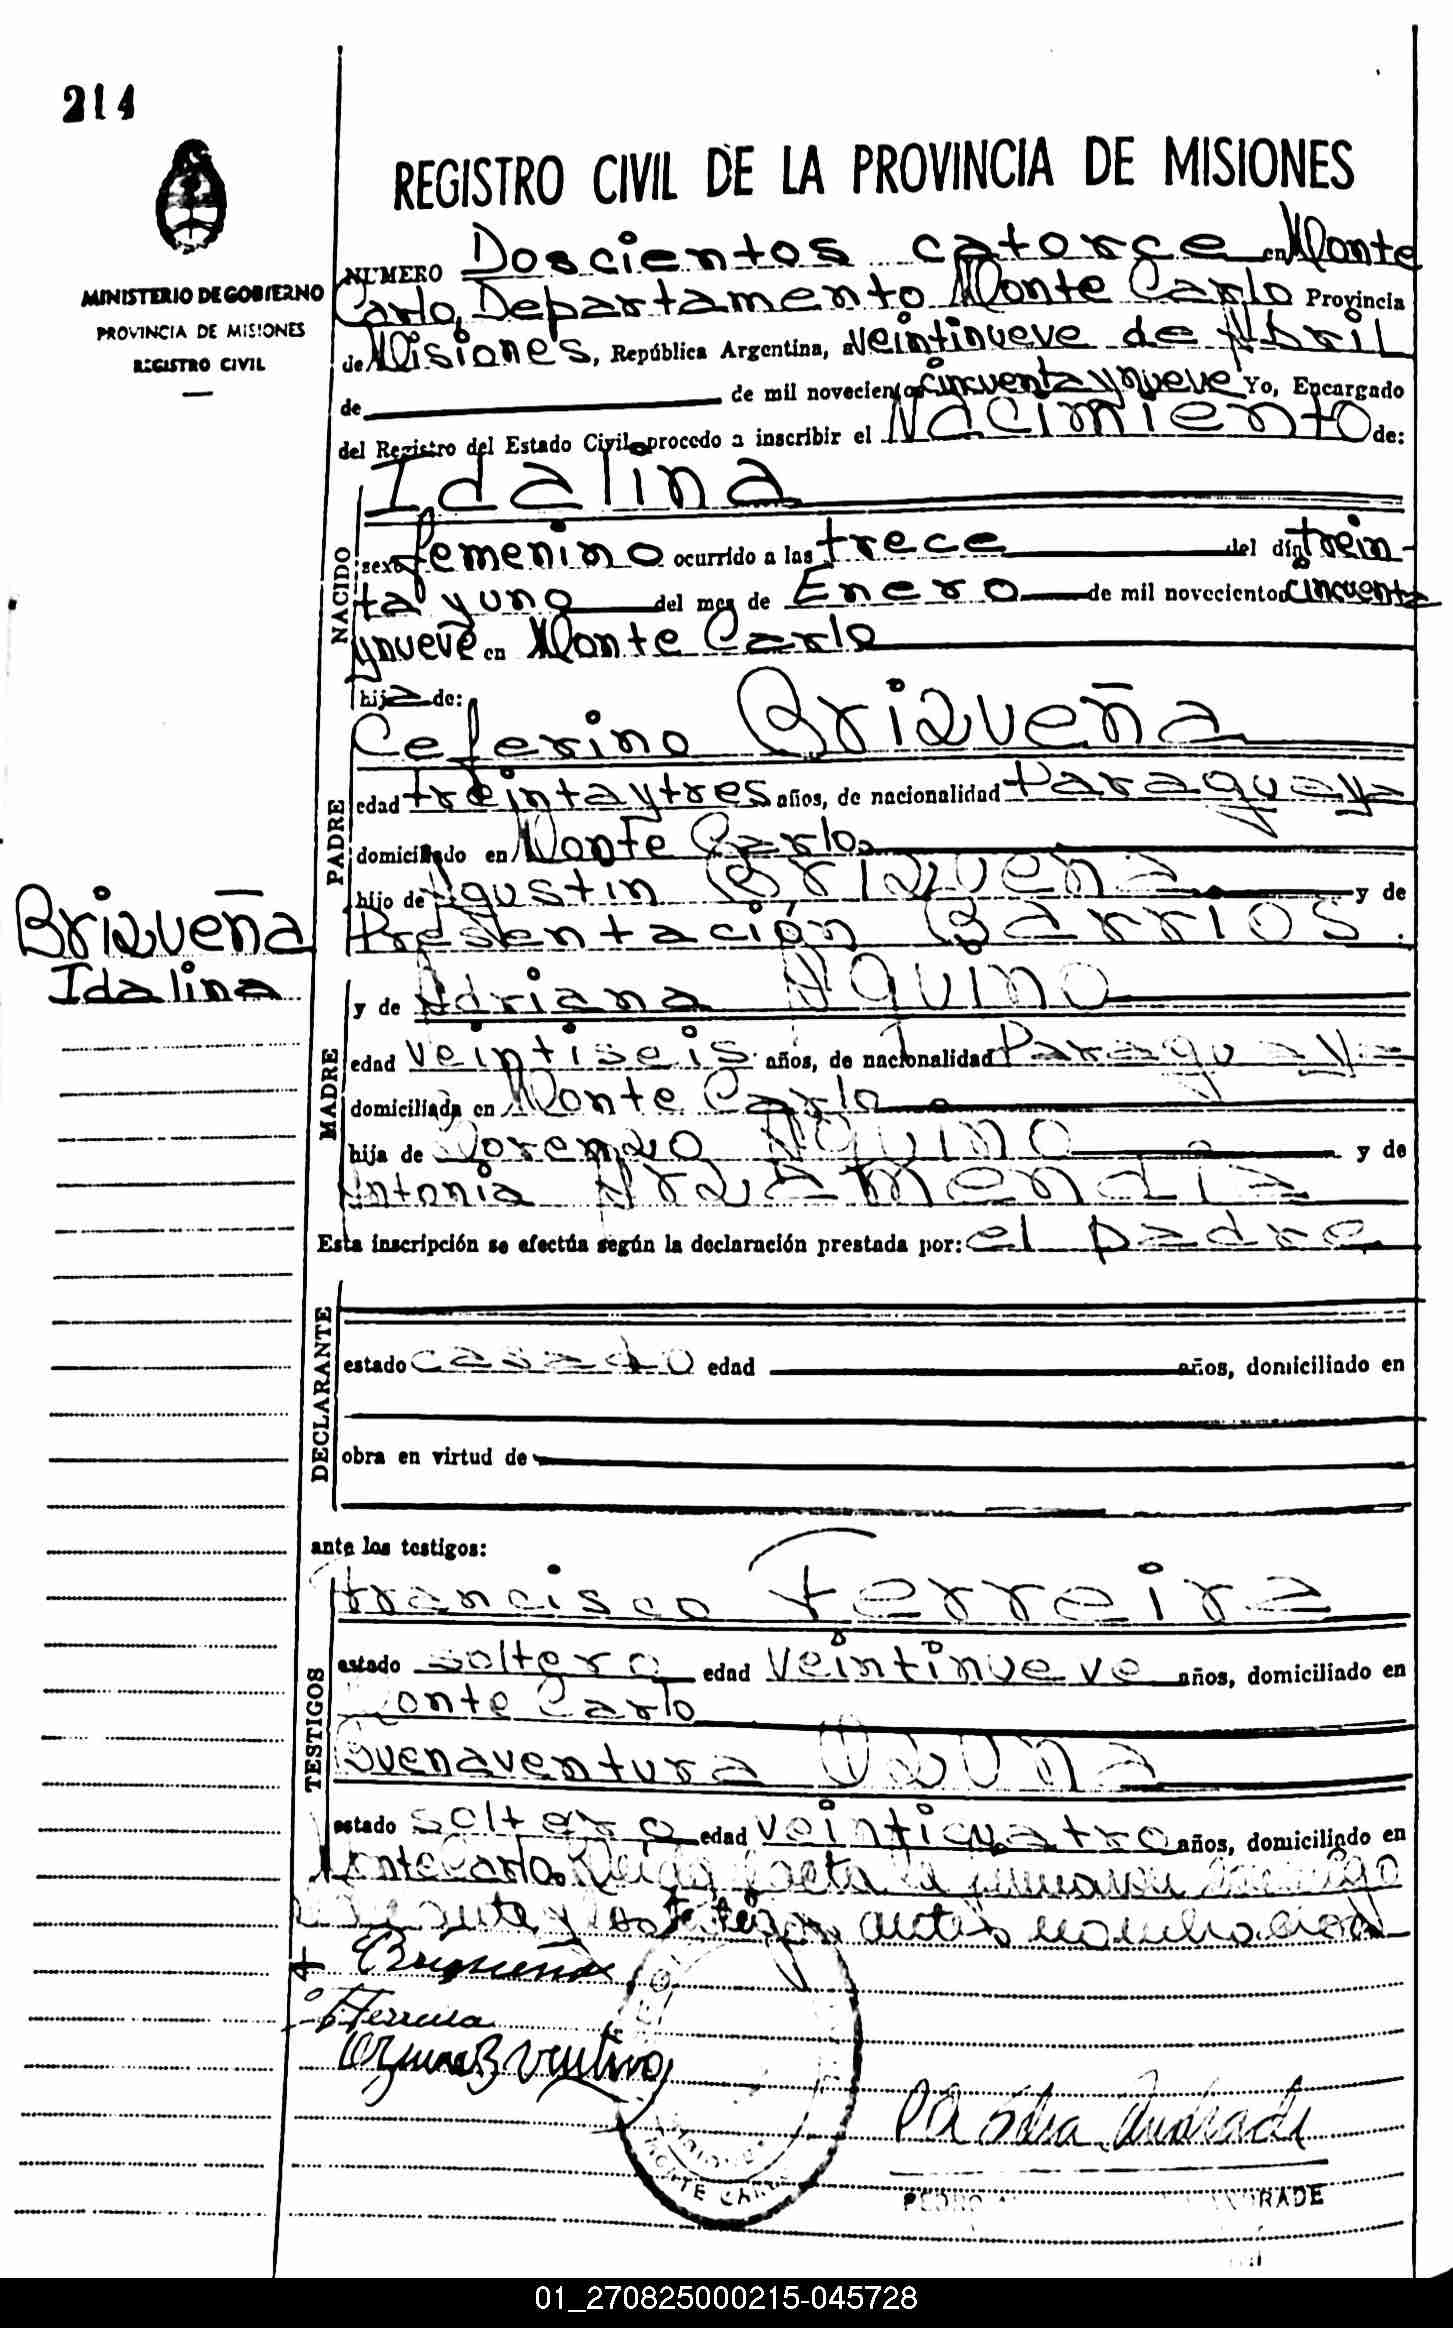 214
MINISTERIO DE GOBIERNO
PROVINCIA DE MISIONES
REGISTRO CIVIL
REGISTRO CIVIL DE LA PROVINCIA DE MISIONES
NUMERO Doscientos catorce en Monte
Carlo, Departamento Monte Carlo Provincia
de Misiones, República Argentina, a veintinueve de Abril
de de mil novecientos cincuenta y nueve Yo, Encargado
del Registro del Estado Civil procedo a inscribir el Nacimiento de:
Idalina
NACIDO
sexo femenino ocurrido a las trece del día trein-
ta y uno del mes de Enero de mil novecientos cincuenta
y nueve en Monte Carlo
hija de:
Ceferino Brizueña
PADRE
edad treinta y tres años, de nacionalidad Paraguaya
domiciliado en Monte Carlo
hijo de Agustin Brizueña y de
Presentación Barrios
Brizueña
Idalina
MADRE
y de Adriana Aquino
edad veintiseis años, de nacionalidad Paraguaya
domiciliada en Monte Carlo
hija de Lorenzo Aquino y de
Antonia Arzamendia
Esta inscripción se efectúa según la declaración prestada por: el padre
DECLARANTE
estado casado edad años, domiciliado en
obra en virtud de
ante los testigos:
TESTIGOS
Francisco Ferreira
estado soltero edad veintinueve años, domiciliado en
Monte Carlo
Buenaventura Ozuna
estado soltero edad veinticuatro años, domiciliado en
Monte Carlo. Leida el acta la firmaron conmigo
y los testigos antes
Brizueña
Ferreira
MISIONES
MONTE CARLO
PEDRO ANDRADE
01_270825000215-045728